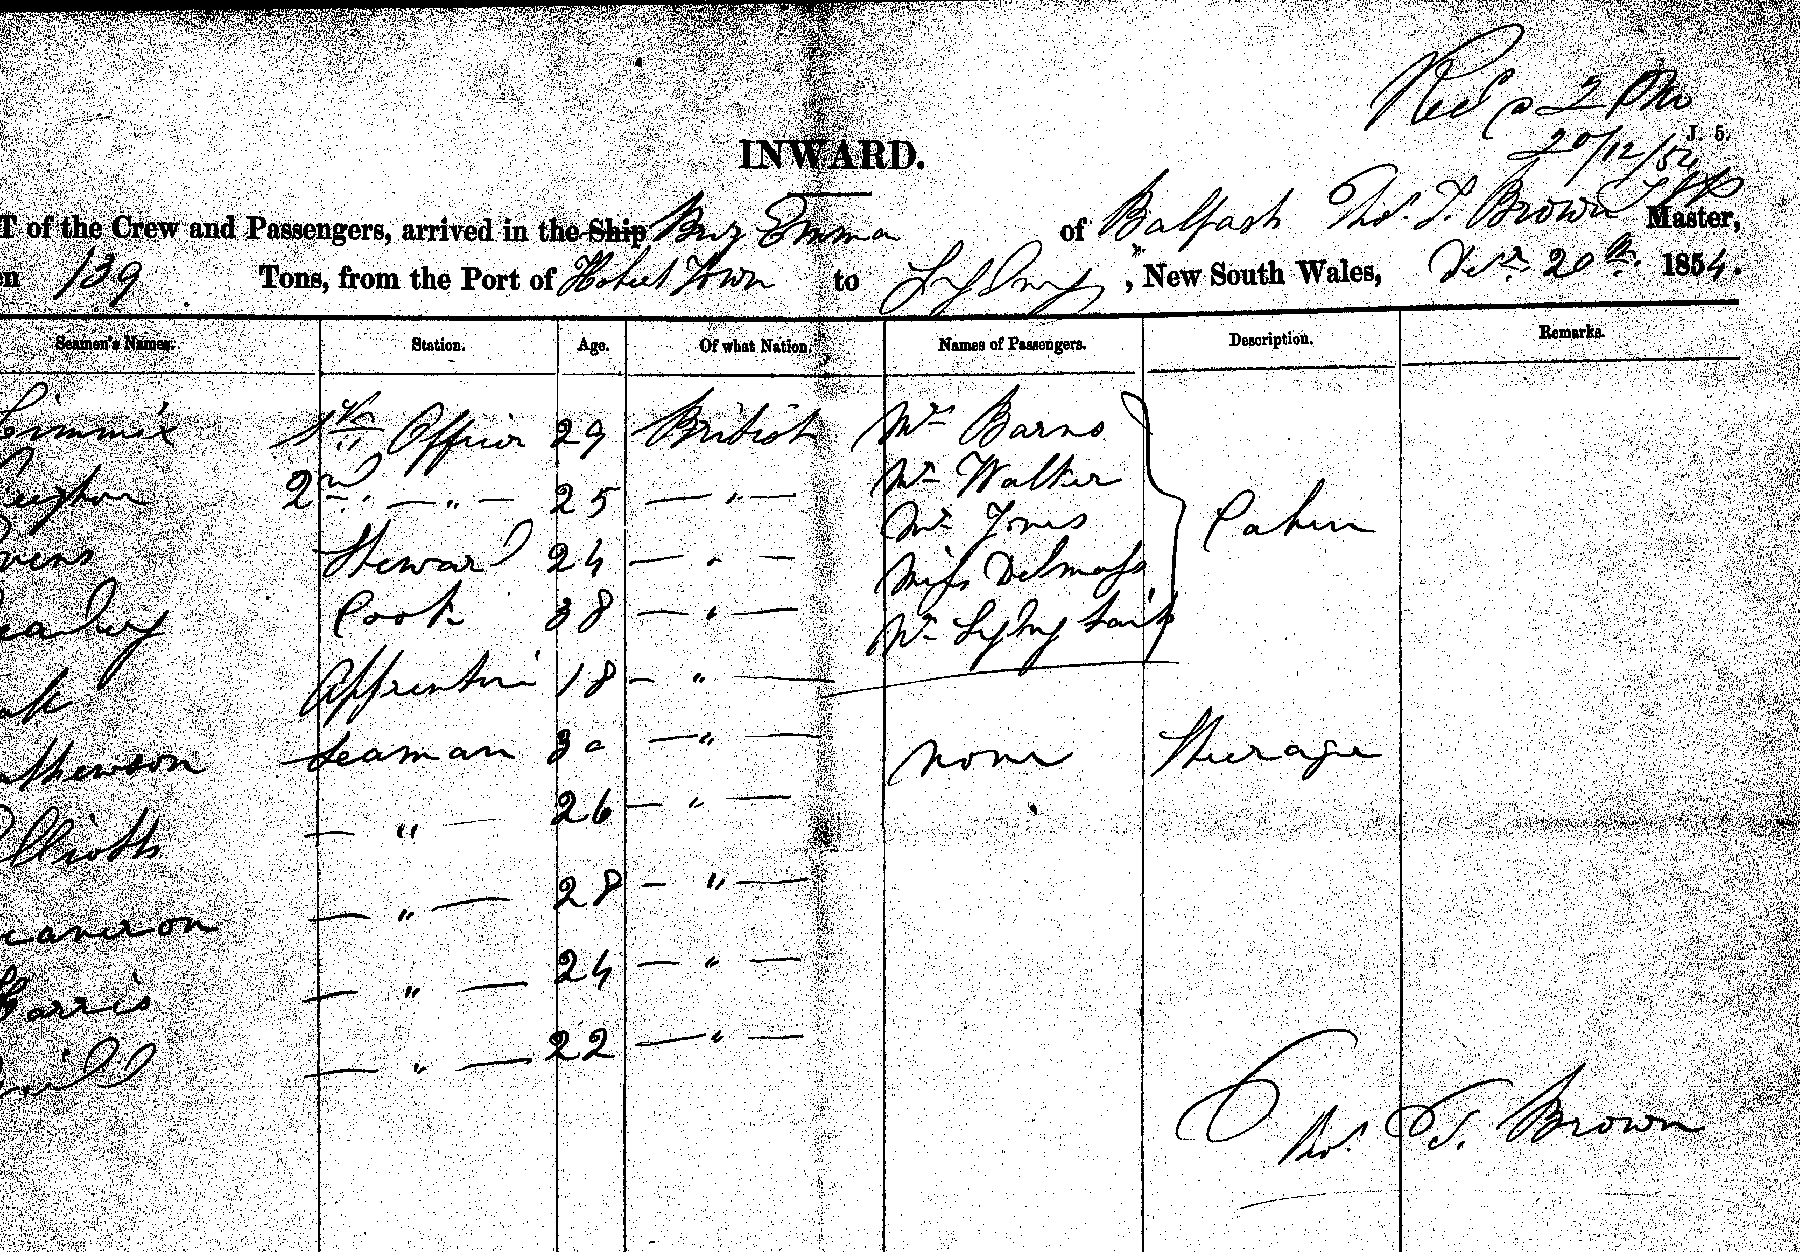 Rec'd @ 2 Pm
J. 5.
20/12/54
INWARD.
T of the Crew and Passengers, arrived in the Ship Brig Emma of Belfast Thos. T. Brown Master,
en 139 Tons, from the Port of Hobart Town to Sydney, New South Wales, Decr. 20th. 1854.
Seamen's Names. Station. Age. Of what Nation. Names of Passengers. Description. Remarks.
1st Officer 29 British Mr Barns
2nd. — " — 25 — " — Mr Walker
Mr Jones Cabin
vens Steward 24 — " — Miss Delmass
Cook 38 — " — Mr
Apprentice 18 — " —
athewson Seaman 30 — " — None Steerage
Elliotts — " — 26 — " —
Cameron — " — 28 — " —
Harris — " — 24 — " —
— " — 22 — " —
Thos. T. Brown